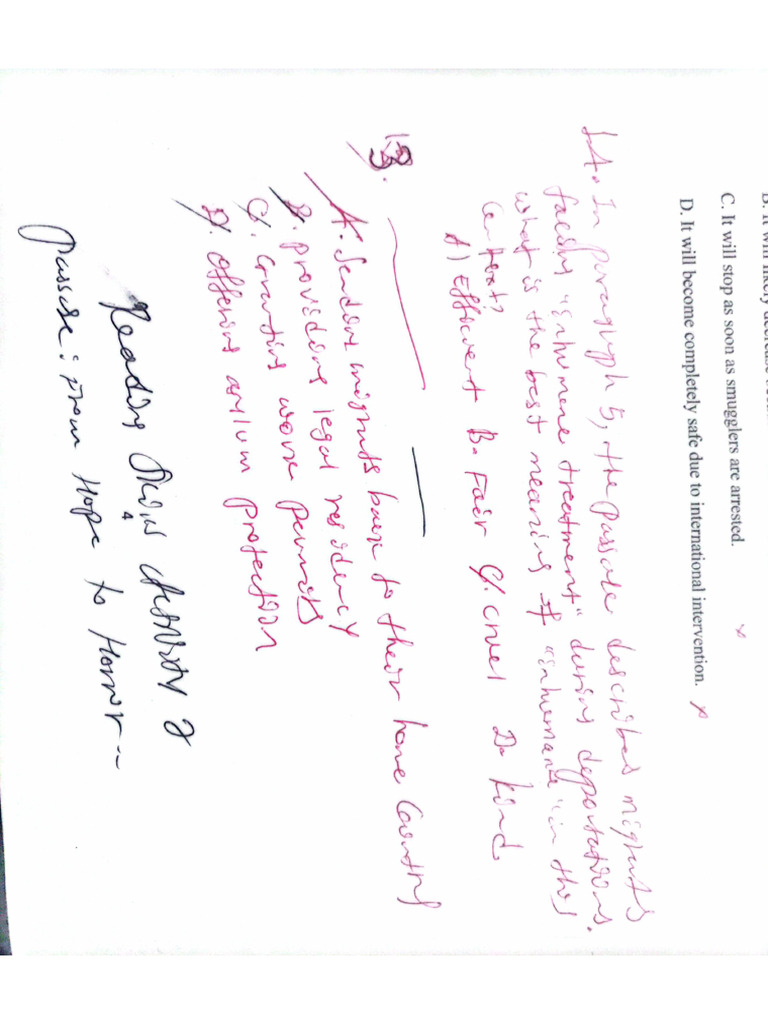 B. It will likely decrease
C. It will stop as soon as smugglers are arrested. x
D. It will become completely safe due to international intervention. x
14. In paragraph 5, the passage describes migrants
facing "inhumane treatment" during deportations.
what is the best meaning of "inhumane" in this
context?
A) Efficient B. Fair C. cruel D. kind
13.
A. Sending migrants back to their home country
B. providing legal residency
C. Granting work permits
D. offering asylum protection
Reading Skills Activity 2
4
passage: From Hope to Horror--